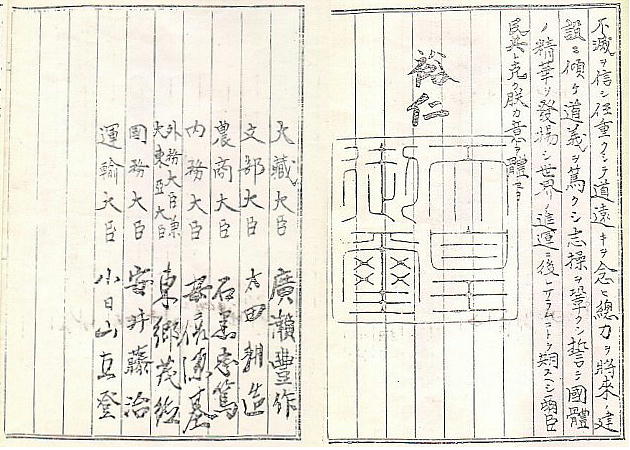 不滅ヲ信シ任重クシテ道遠キヲ念ヒ總力ヲ將來ノ建
設ニ傾ケ道義ヲ篤クシ志操ヲ鞏クシ誓テ國體
ノ精華ヲ發揚シ世界ノ進運ニ後レサラムコトヲ期スヘシ爾臣
民其レ克ク朕カ意ヲ體セヨ
裕仁
天皇
御璽
大藏大臣 廣瀨豐作
文部大臣 太田耕造
農商大臣 石黑忠篤
内務大臣 安倍源基
外務大臣兼
大東亞大臣 東鄕茂德
國務大臣 安井藤治
運輸大臣 小日山直登